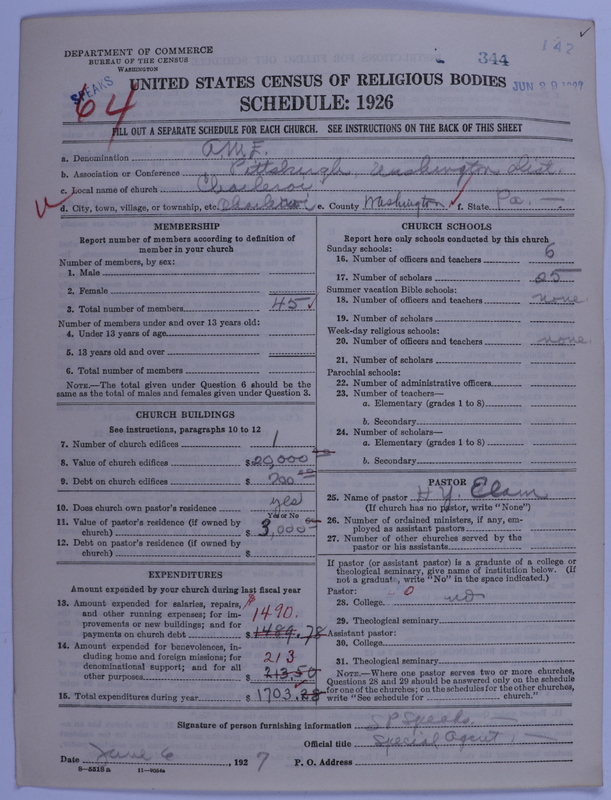 142
DEPARTMENT OF COMMERCE
BUREAU OF THE CENSUS
WASHINGTON
344
SPEAKS
64
UNITED STATES CENSUS OF RELIGIOUS BODIES
JUN 29 1927
SCHEDULE: 1926
FILL OUT A SEPARATE SCHEDULE FOR EACH CHURCH. SEE INSTRUCTIONS ON THE BACK OF THIS SHEET
a. Denomination A.M.E.
b. Association or Conference Pittsburgh, Washington Dist.
c. Local name of church Charleroi
d. City, town, village, or township, etc. Charleroi e. County Washington f. State Pa.
MEMBERSHIP
Report number of members according to definition of
member in your church
Number of members, by sex:
1. Male
2. Female
3. Total number of members 45
Number of members under and over 13 years old:
4. Under 13 years of age
5. 13 years old and over
6. Total number of members
NOTE.—The total given under Question 6 should be the
same as the total of males and females given under Question 3.
CHURCH BUILDINGS
See instructions, paragraphs 10 to 12
7. Number of church edifices 1
8. Value of church edifices $20,000 00
9. Debt on church edifices $ 200 00
10. Does church own pastor's residence yes
Yes or No
11. Value of pastor's residence (if owned by
church) $ 3,000 00
12. Debt on pastor's residence (if owned by
church) $
EXPENDITURES
Amount expended by your church during last fiscal year
13. Amount expended for salaries, repairs,
and other running expenses; for im-
provements or new buildings; and for
payments on church debt $ 1489.78
$ 1490.
14. Amount expended for benevolences, in-
cluding home and foreign missions; for
denominational support; and for all
other purposes $ 213.50
213
15. Total expenditures during year $ 1703.28
CHURCH SCHOOLS
Report here only schools conducted by this church
Sunday schools:
16. Number of officers and teachers 6
17. Number of scholars 25
Summer vacation Bible schools:
18. Number of officers and teachers none
19. Number of scholars
Week-day religious schools:
20. Number of officers and teachers none
21. Number of scholars
Parochial schools:
22. Number of administrative officers
23. Number of teachers—
a. Elementary (grades 1 to 8)
b. Secondary
24. Number of scholars—
a. Elementary (grades 1 to 8)
b. Secondary
PASTOR
25. Name of pastor H. Y. Elam
(If church has no pastor, write "None")
26. Number of ordained ministers, if any, em-
ployed as assistant pastors
27. Number of other churches served by the
pastor or his assistants
If pastor (or assistant pastor) is a graduate of a college or
theological seminary, give name of institution below. (If
not a graduate, write "No" in the space indicated.)
Pastor: 0
28. College no
29. Theological seminary
Assistant pastor:
30. College
31. Theological seminary
NOTE.—Where one pastor serves two or more churches,
Questions 28 and 29 should be answered only on the schedule
for one of the churches; on the schedules for the other churches,
write "See schedule for church."
Signature of person furnishing information S P Speaks
Official title Special Agent
Date June 6, 1927 P. O. Address
8—5518a 11—9054a